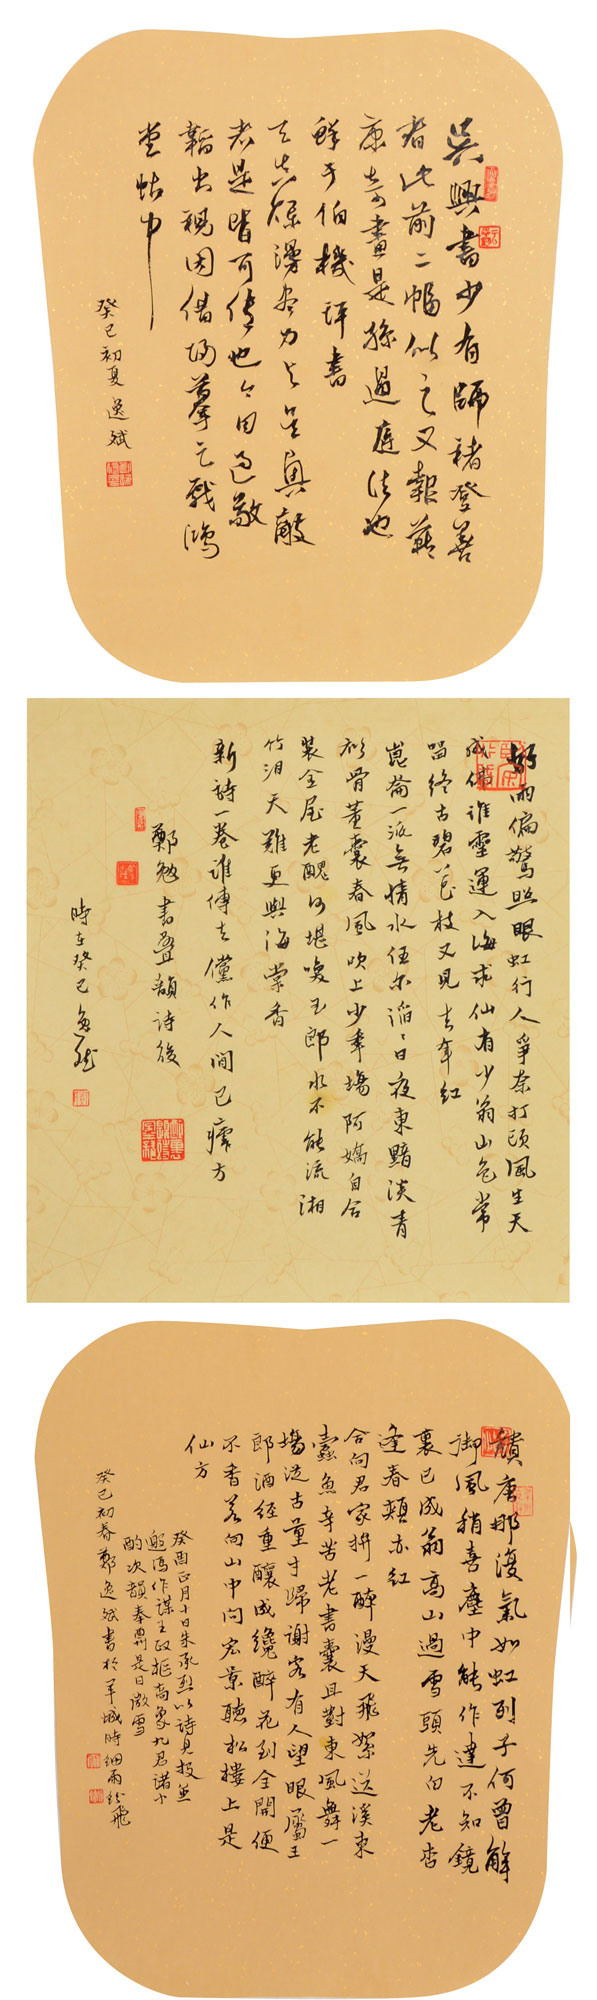 吳興書少有師褚登善
者此前二幅似之又報
康奇畫是孫過庭法也
鮮于伯機評書
者是皆可傳也今日
觀因借歸摹之戲鴻
堂帖中
癸巳初夏逸斌
好雨偏驚照眼虹行人爭奈打頭風生天
成佛誰靈運入海求仙有少翁山色常
留終古碧花枝又見去年紅
崑崙一派無情水任尔滔々日夜東黯淡青
衫骨董囊春風吹上少年場阿嬌自合
裝金屋老醜何堪喚玉郎水不能流湘
竹淚天難更與海棠香
新詩一卷誰傳去儻作人間已瘧方
鄭勉書疊韻詩後
時在癸巳逸斌
頹唐那復氣如虹列子何曾解
御風稍喜塵中能作達不知鏡
裏已成翁高山過雪頭先白老杏
逢春頰亦紅
合向君家拚一醉漫天飛絮送溪東
蠹魚辛苦老書囊且對東風舞一
場從古量才歸謝客有人望眼屬王
郎酒經重釀成纔醉花到全開便
不香若向山中問宏景聽松樓上是
仙方
癸酉正月十日朱承烈以詩見投並
邀馮作謀王政樞高象九君諾小
酌次韻奉酬是日微雪
癸巳初春鄭逸斌書於羊城時細雨紛飛